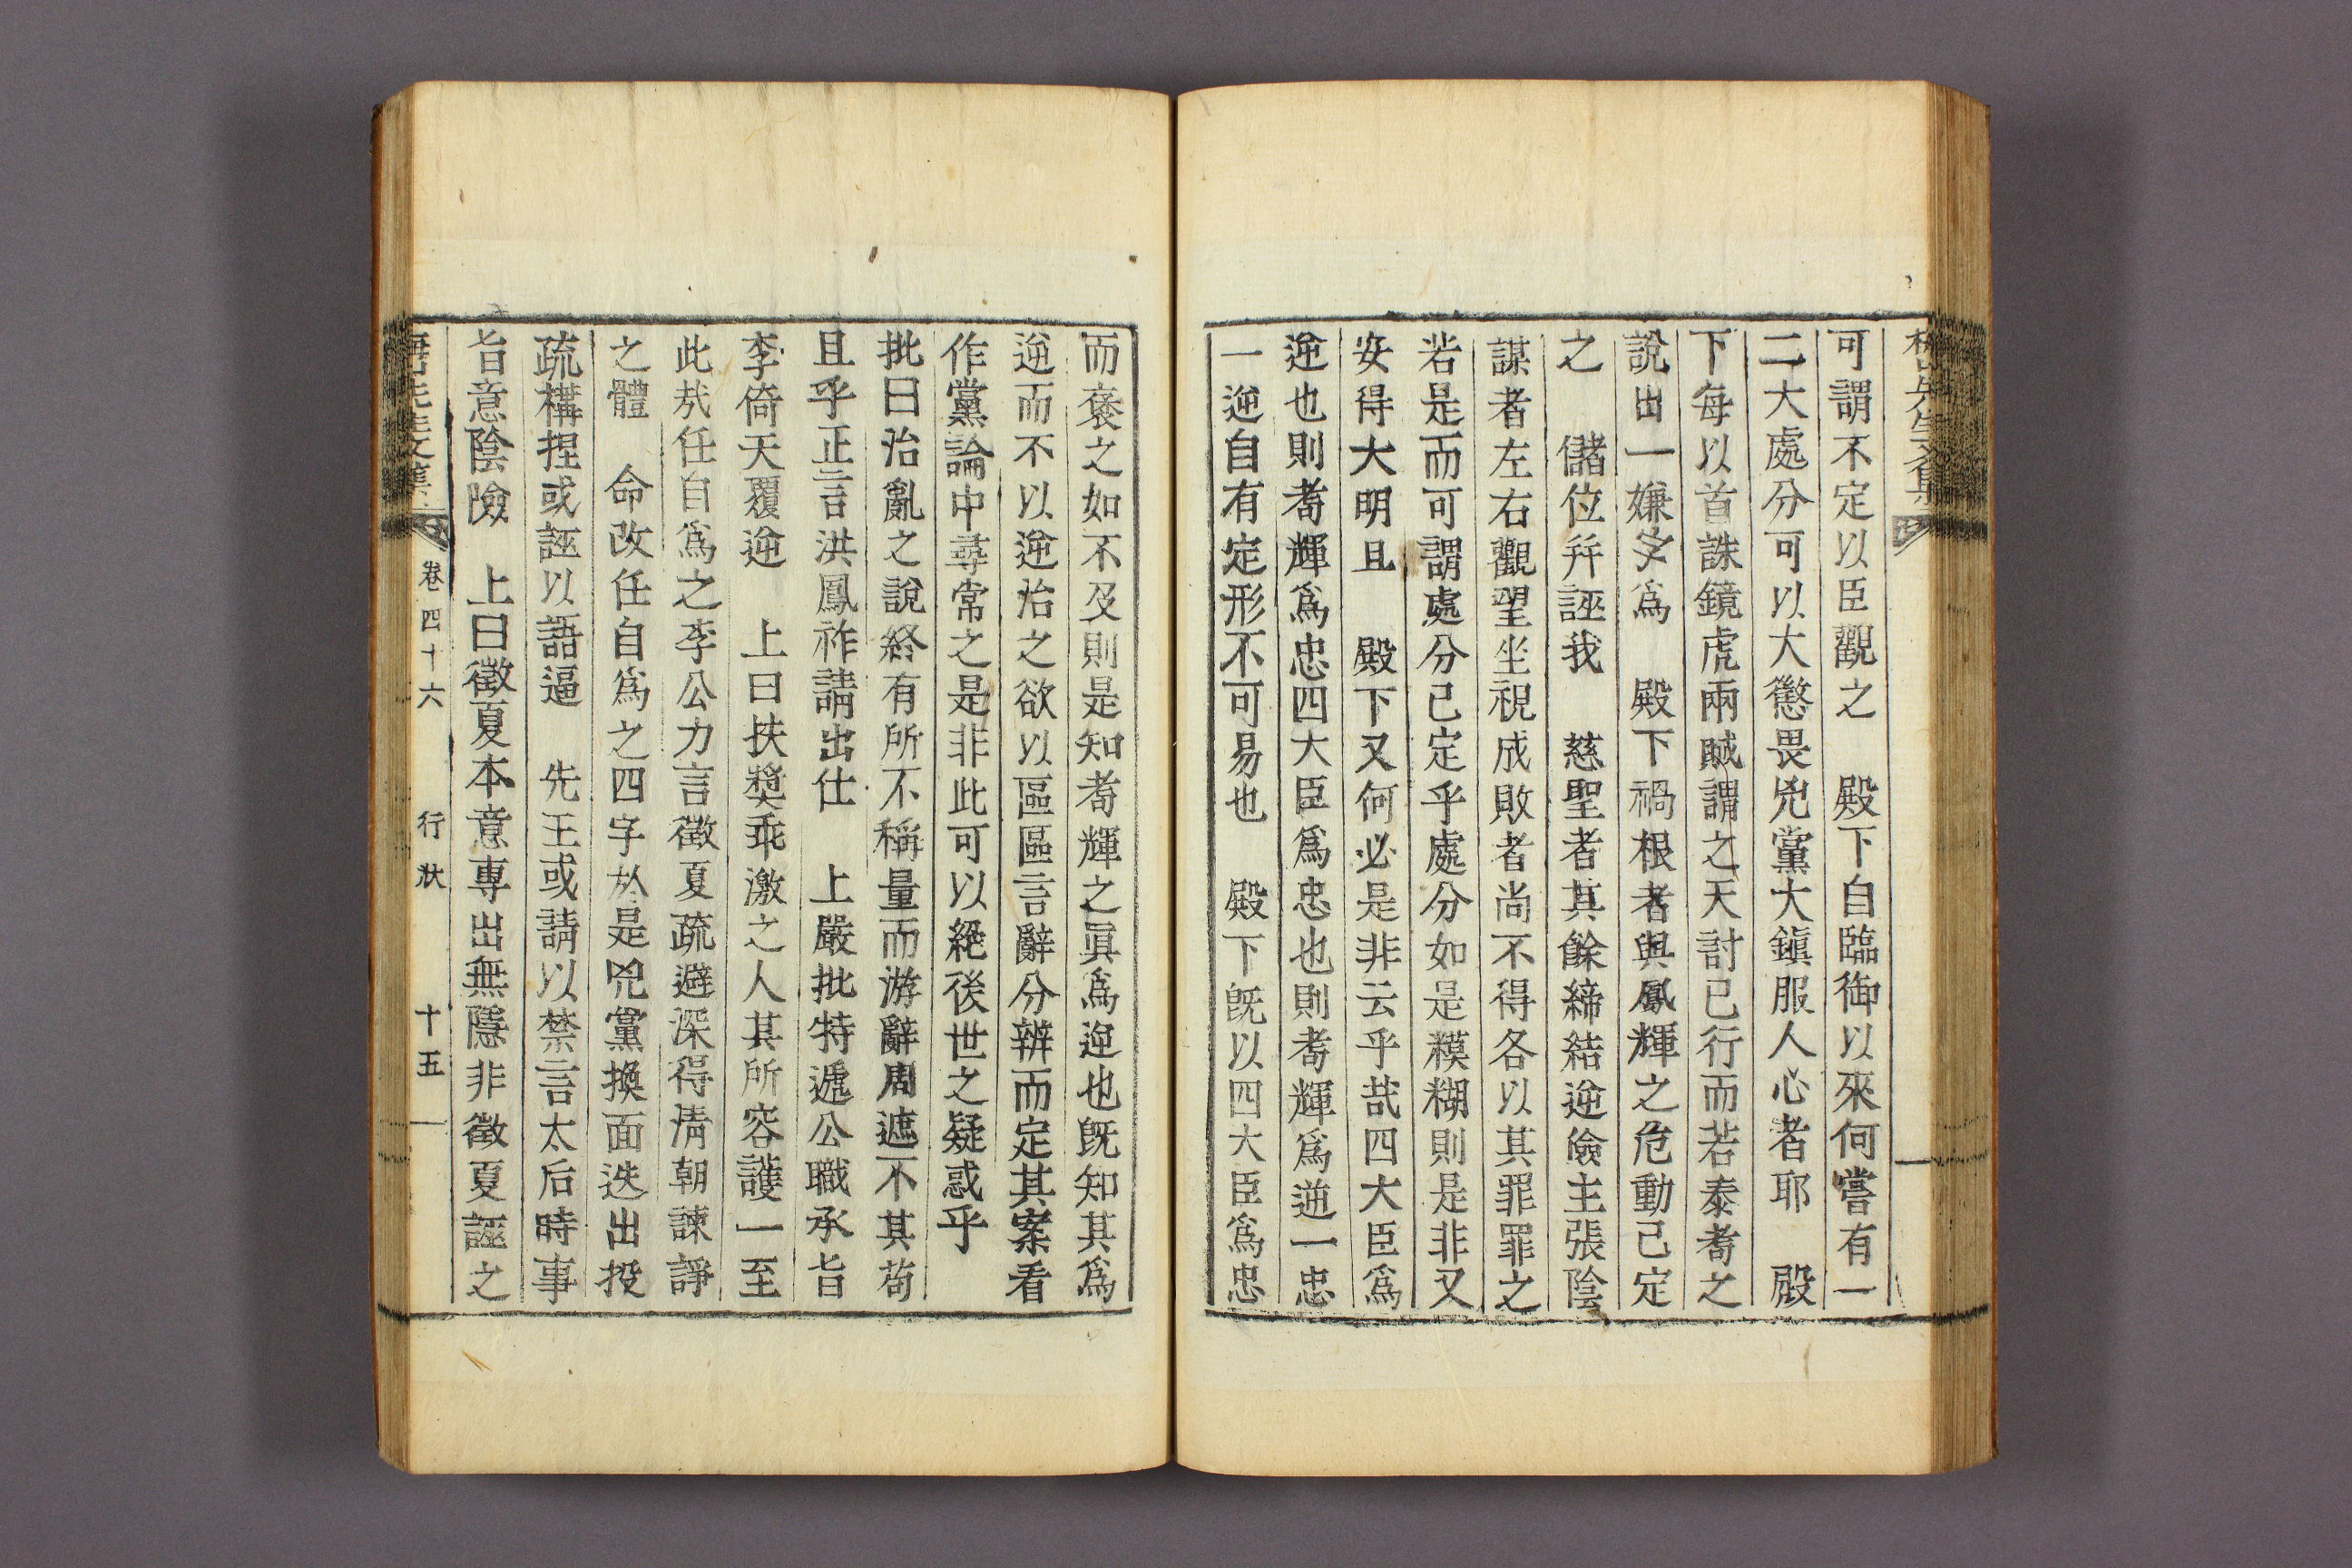 可謂不定以臣觀之　殿下自臨御以來何嘗有一
二大處分可以大懲畏兇黨大鎭服人心者耶　殿
下每以首誅鏡虎兩賊謂之天討已行而若泰耉之
說出一嫌字爲　殿下禍根者與鳳輝之危動已定
之　儲位幷誣我　慈聖者其餘締結逆儉主張陰
謀者左右觀望坐視成敗者尚不得各以其罪罪之
若是而可謂處分已定乎處分如是糢糊則是非又
安得大明且　殿下又何必是非云乎哉四大臣爲
逆也則耉輝爲忠四大臣爲忠也則耉輝爲逆一忠
一逆自有定形不可易也　殿下旣以四大臣爲忠
而褒之如不及則是知耉輝之眞爲逆也旣知其爲
逆而不以逆治之欲以區區言辭分辨而定其案看
作黨論中尋常之是非此可以絕後世之疑惑乎
批曰治亂之說終有所不稱量而游辭周遮不其苟
且乎正言洪鳳祚請出仕　上嚴批特遞公職承旨
李倚天覆逆　上曰扶奬乖激之人其所容護一至
此哉任自爲之李公力言徵夏疏避深得淸朝諫諍
之體　命改任自爲之四字於是兇黨換面迭出投
疏構捏或誣以語逼　先王或請以禁言太后時事
旨意陰險　上曰徵夏本意專出無隱非徵夏誣之
卷四十六　行狀　十五